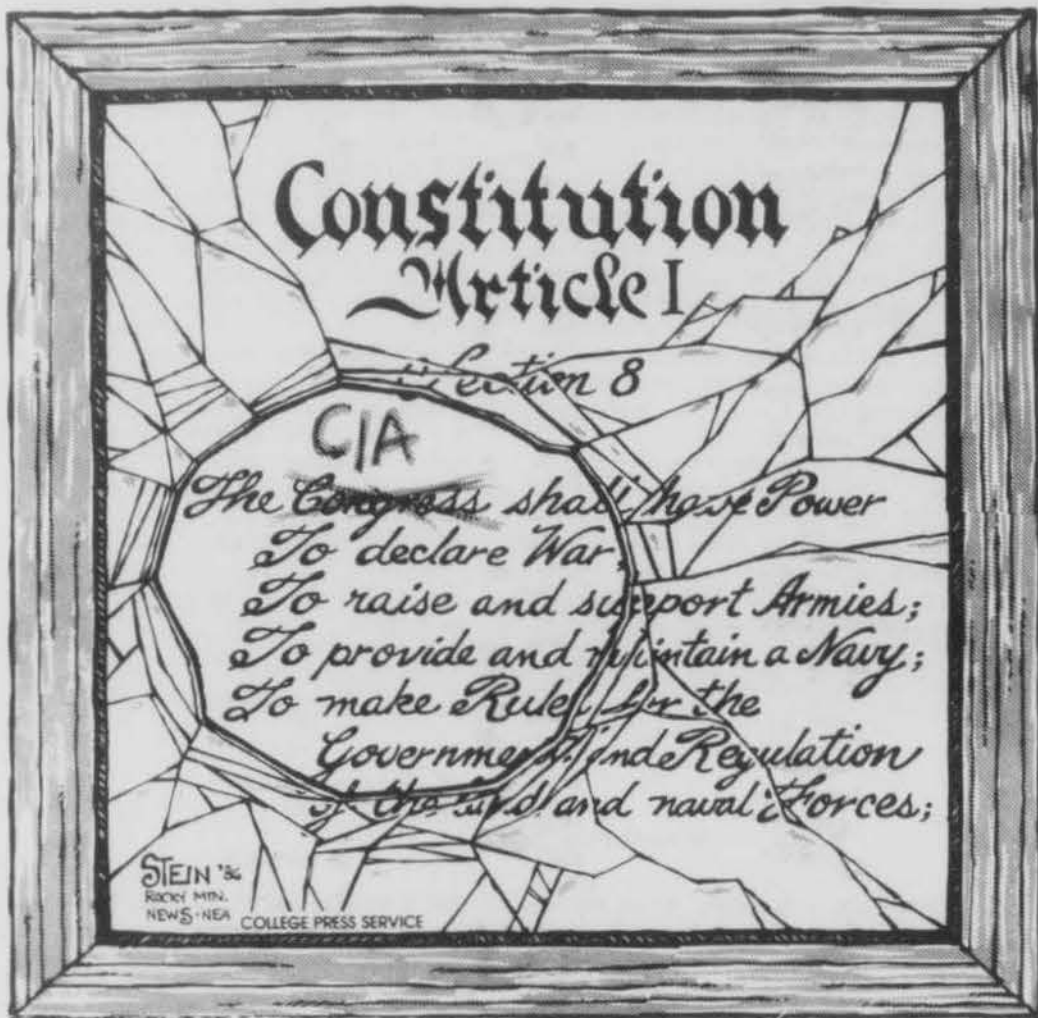 Constitution
Article I
Section 8
CIA
The Congress shall have Power
To declare War,
To raise and support Armies;
To provide and maintain a Navy;
To make Rules for the
Government and Regulation
of the land and naval Forces;
STEIN '86
ROCKY MTN.
NEWS-NEA
COLLEGE PRESS SERVICE